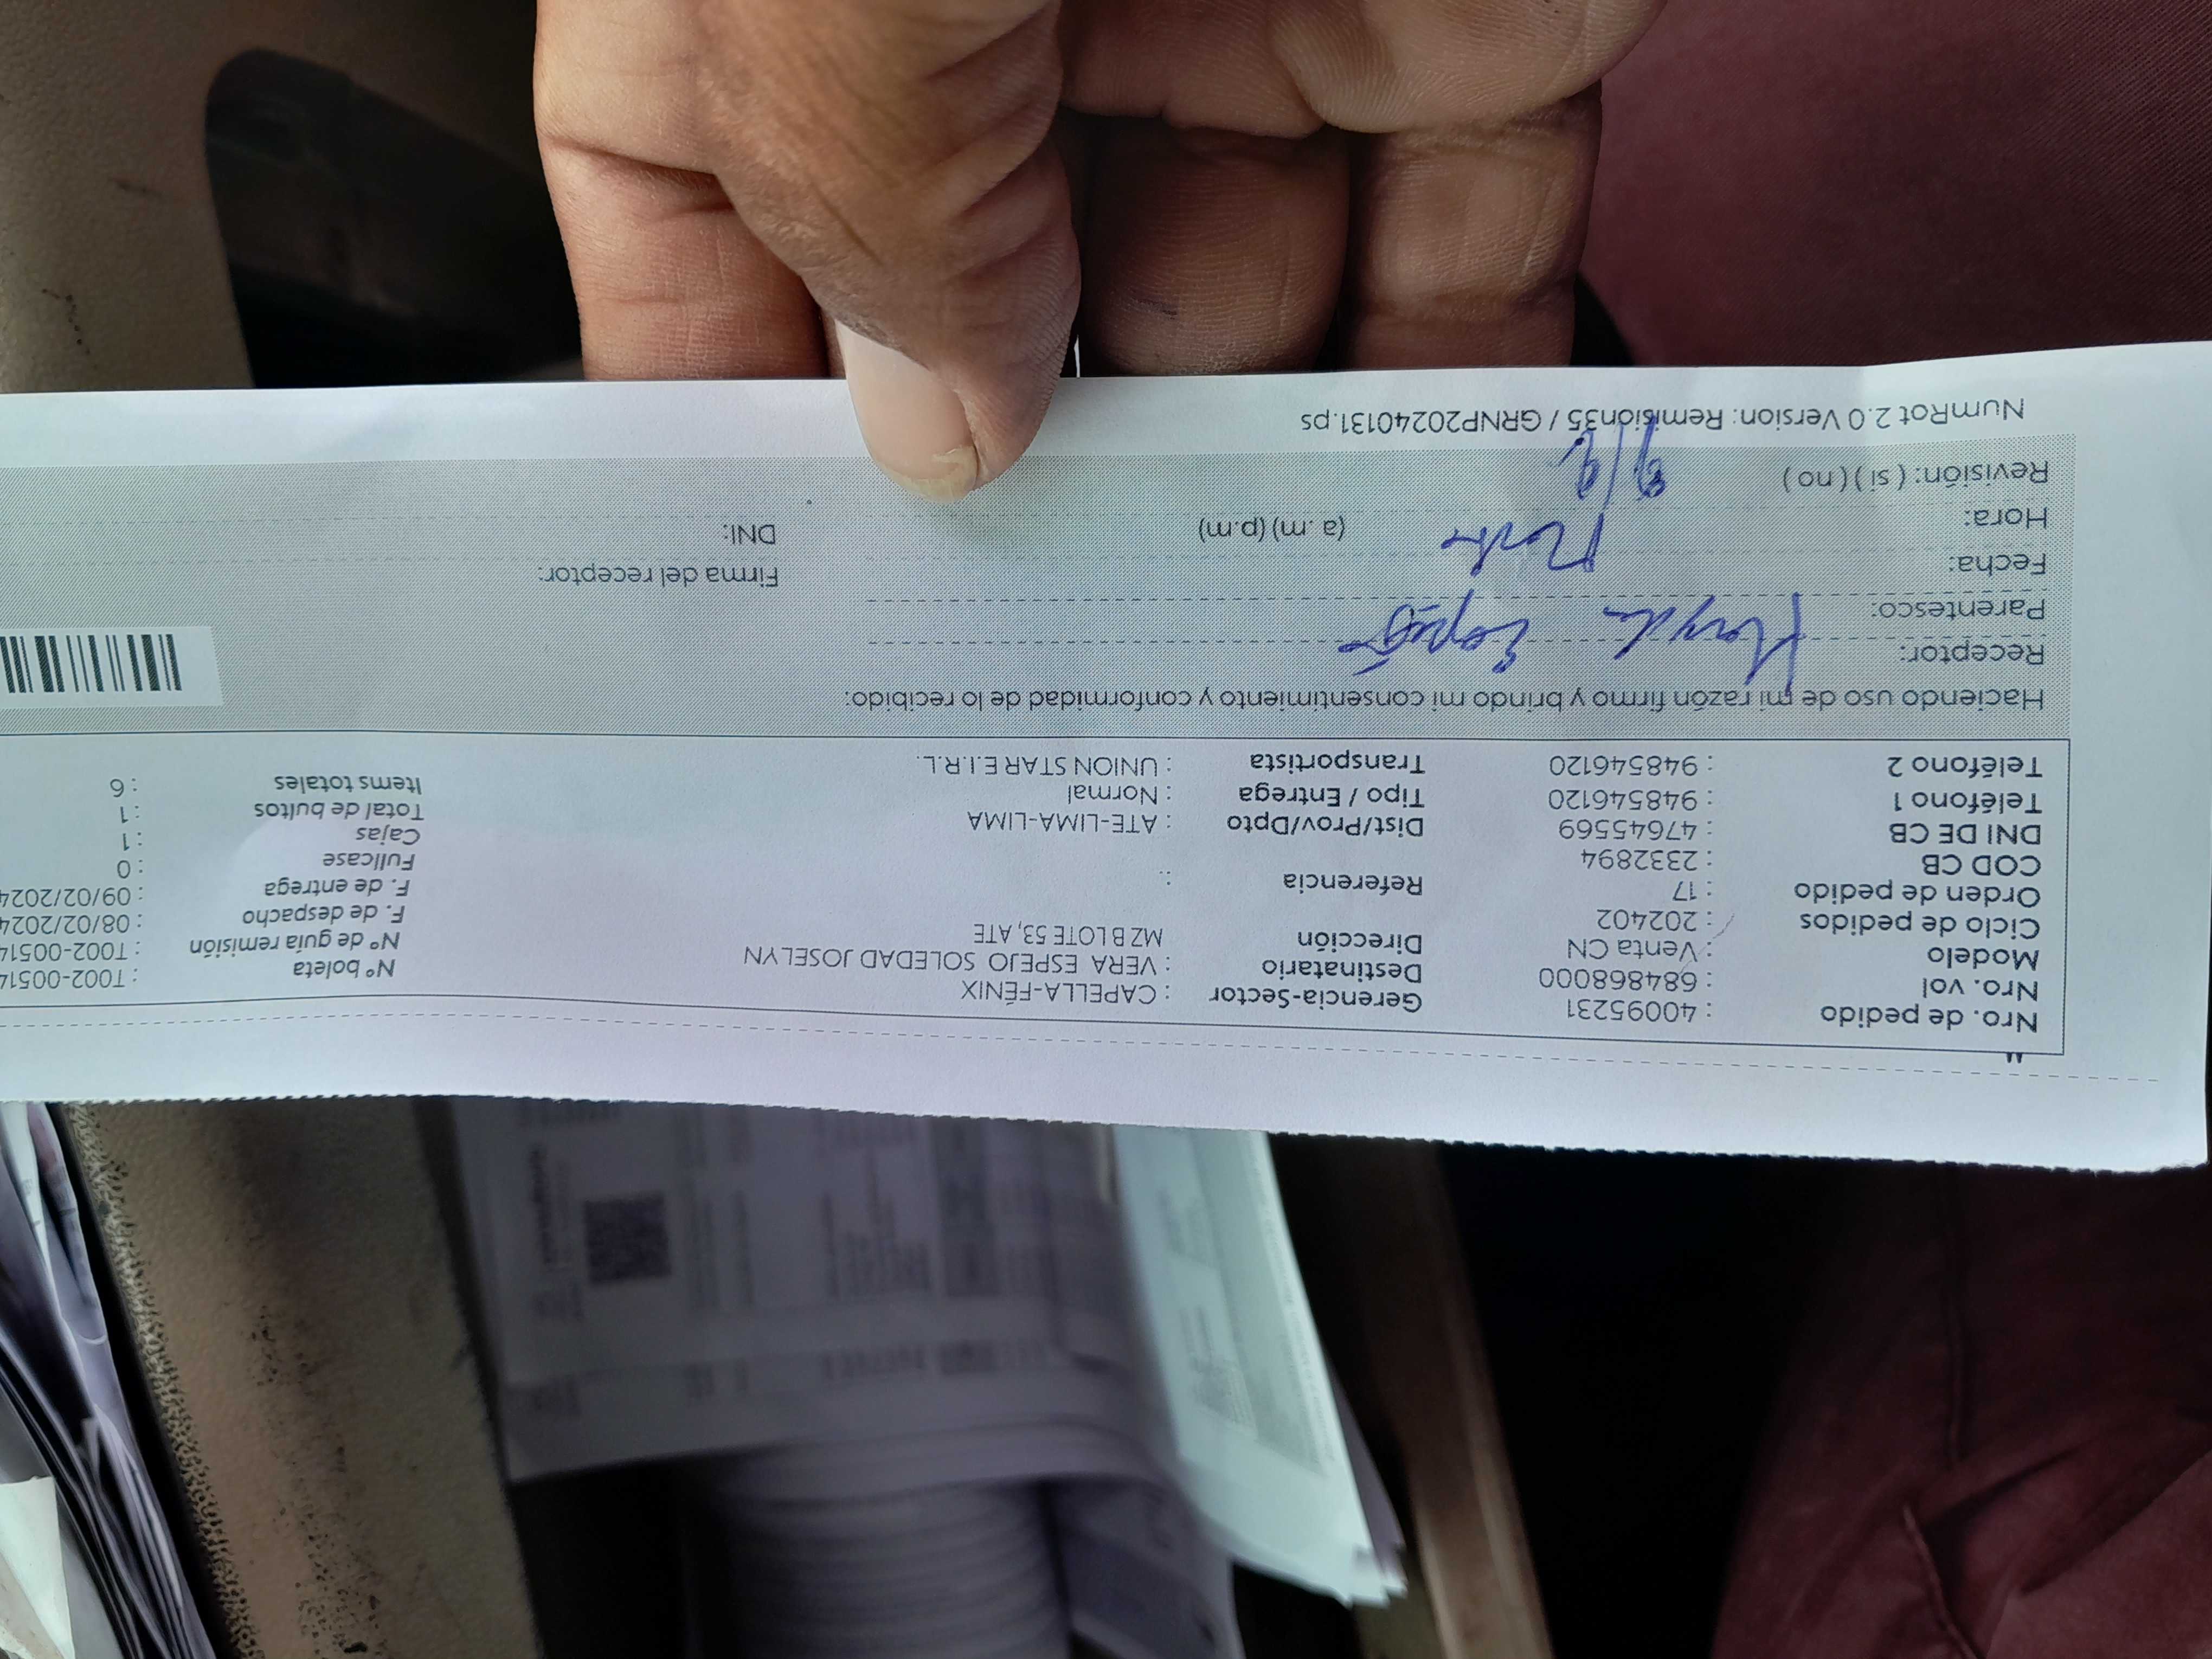 Nro. de pedido : 40095231 Gerencia-Sector : CAPELLA-FÉNIX Nº boleta : T002-00514
Nro. vol : 684868000 Destinatario : VERA ESPEJO SOLEDAD JOSELYN Nº de guía remisión : T002-00514
Modelo : Venta CN Dirección MZ B LOTE 53, ATE F. de despacho : 08/02/2024
Ciclo de pedidos : 202402 F. de entrega : 09/02/2024
Orden de pedido : 17 Referencia : Fullcase : 0
COD CB : 2332894 Cajas : 1
DNI DE CB : 47645569 Dist/Prov/Dpto : ATE-LIMA-LIMA Total de bultos : 1
Teléfono 1 : 948546120 Tipo / Entrega : Normal Items totales : 6
Teléfono 2 : 948546120 Transportista : UNION STAR E.I.R.L.
Haciendo uso de mi razón firmo y brindo mi consentimiento y conformidad de lo recibido:
Receptor:
Parentesco:
Fecha: Firma del receptor:
Hora: (a .m) (p.m) DNI:
Revisión: ( si ) ( no )
NumRot 2.0 Version: Remisión35 / GRNP20240131.ps